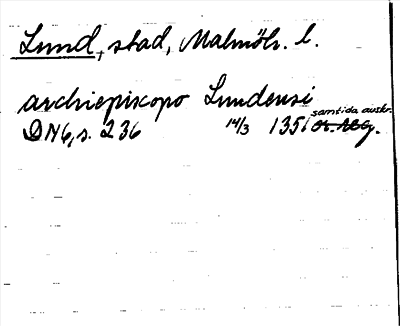 Lund, stad, Malmöh. l.
archiepiscopo Lundensi
samtida avskr.
DN6, s. 236 14/3 1351 or.